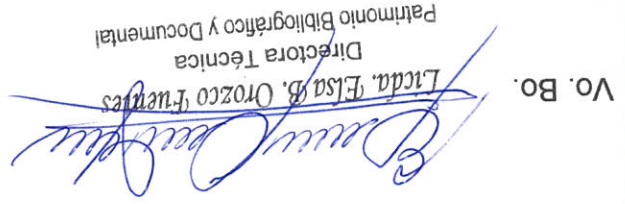 Vo. Bo.
Licda. Elsa B. Orozco Fuentes
Directora Técnica
Patrimonio Bibliográfico y Documental